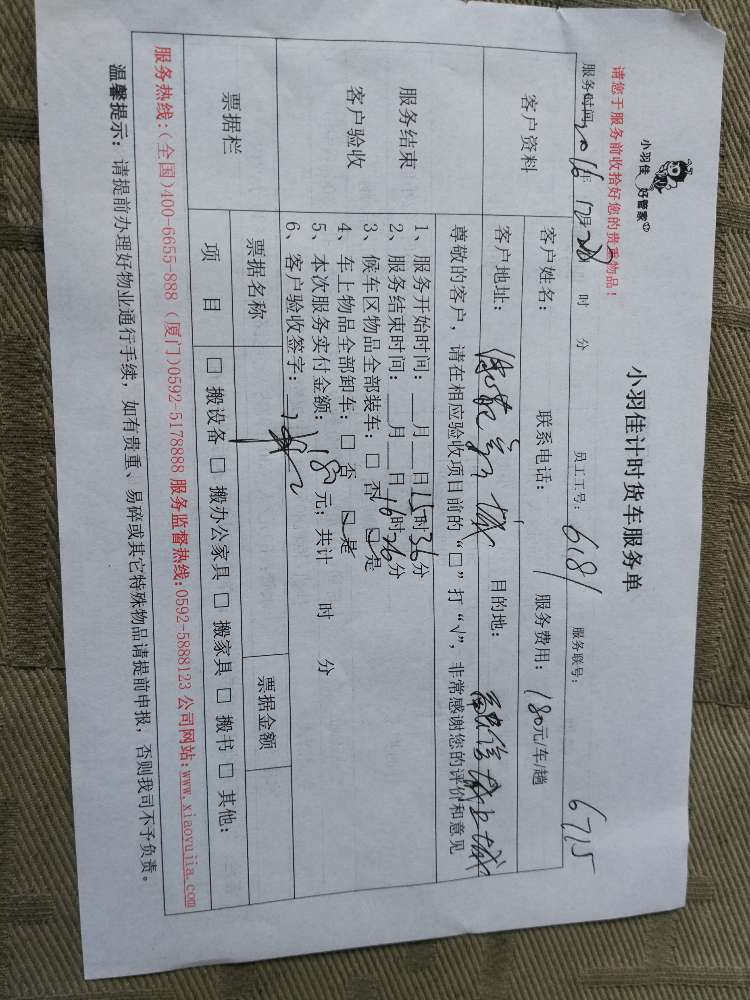 小羽佳 好管家
请您于服务前收拾好您的贵重物品!
小羽佳计时货车服务单
服务时间: 2016年12月28日 时 分 员工工号: 6181 服务联号: 6715
客户资料
客户姓名: 联系电话: 服务费用: 180元/车/趟
客户地址: 新城 目的地:
尊敬的客户,请在相应验收项目前的“□”打“√”,非常感谢您的评价和意见
服务结束
客户验收
1、服务开始时间: 月 日15时36分
2、服务结束时间: 月 日16时26分
3、候车区物品全部装车: □ 否 ☑是
4、车上物品全部卸车: □ 否 ☑是
5、本次服务实付金额: 180元; 共计 时 分
6、客户验收签字:
票据栏
票据名称 票据金额
项 目 □ 搬设备 □ 搬办公家具 □ 搬家具 □ 搬书 □ 其他:
服务热线:(全国)400-6655-888 (厦门)0592-5178888 服务监督热线:0592-5888123 公司网站:www.xiaoyujia.com
温馨提示: 请提前办理好物业通行手续,如有贵重、易碎或其它特殊物品请提前申报,否则我司不予负责。